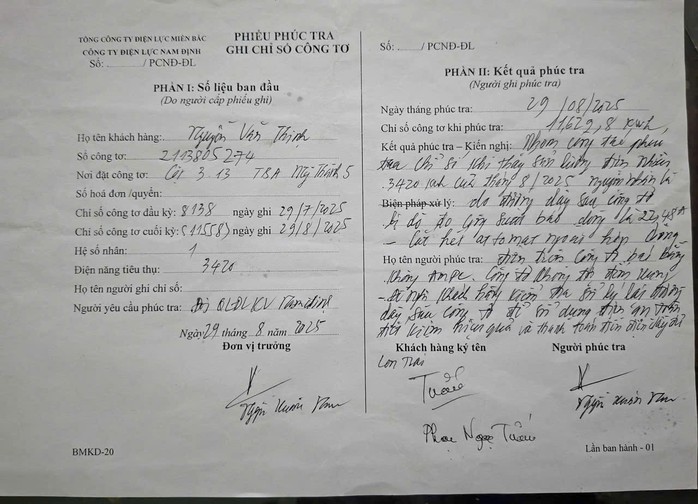 TỔNG CÔNG TY ĐIỆN LỰC MIỀN BẮC
CÔNG TY ĐIỆN LỰC NAM ĐỊNH
Số: ....../ PCNĐ-ĐL
PHIẾU PHÚC TRA
GHI CHỈ SỐ CÔNG TƠ
PHẦN I: Số liệu ban đầu
(Do người cấp phiếu ghi)
Họ tên khách hàng: Nguyễn Văn Thịnh
Số công tơ: 2103805274
Nơi đặt công tơ: Cột 3.13 TBA Mỹ Thịnh 5
Số hoá đơn /quyển:
Chỉ số công tơ đầu kỳ: 8138 ngày ghi 29/7/2025
Chỉ số công tơ cuối kỳ: (11558) ngày ghi 29/8/2025
Hệ số nhân: 1
Điện năng tiêu thụ: 3420
Họ tên người ghi chỉ số:
Người yêu cầu phúc tra: QLĐLKV
Ngày 29 tháng 8 năm 2025
Đơn vị trưởng
BMKD-20
Số: ....../ PCNĐ-ĐL
PHẦN II: Kết quả phúc tra
(Người ghi phúc tra)
Ngày tháng phúc tra: 29/08/2025
Chỉ số công tơ khi phúc tra: 11629,8 kwh
Kết quả phúc tra – Kiến nghị: Nhóm công tác phúc
tra chỉ số khi thấy sản lượng điện nhận
3420 kwh của tháng 8/2025 nguyên nhân là
Biện pháp xử lý: do đường dây sau công tơ
bị dò đo công suất báo dòng là 22,48A
- Cắt hết attomat ngoài hộp
Họ tên người phúc tra: công tơ báo bằng
không Ampe. Công tơ không
- Đề nghị khách hàng kiểm tra xử lý lại đường
dây sau công tơ để sử dụng điện an toàn
tiết kiệm hiệu quả và thanh toán tiền điện đầy đủ
Khách hàng ký tên
Người phúc tra
Con Trai
Tuấn
Phạm Ngọc Tuấn
Lần ban hành - 01